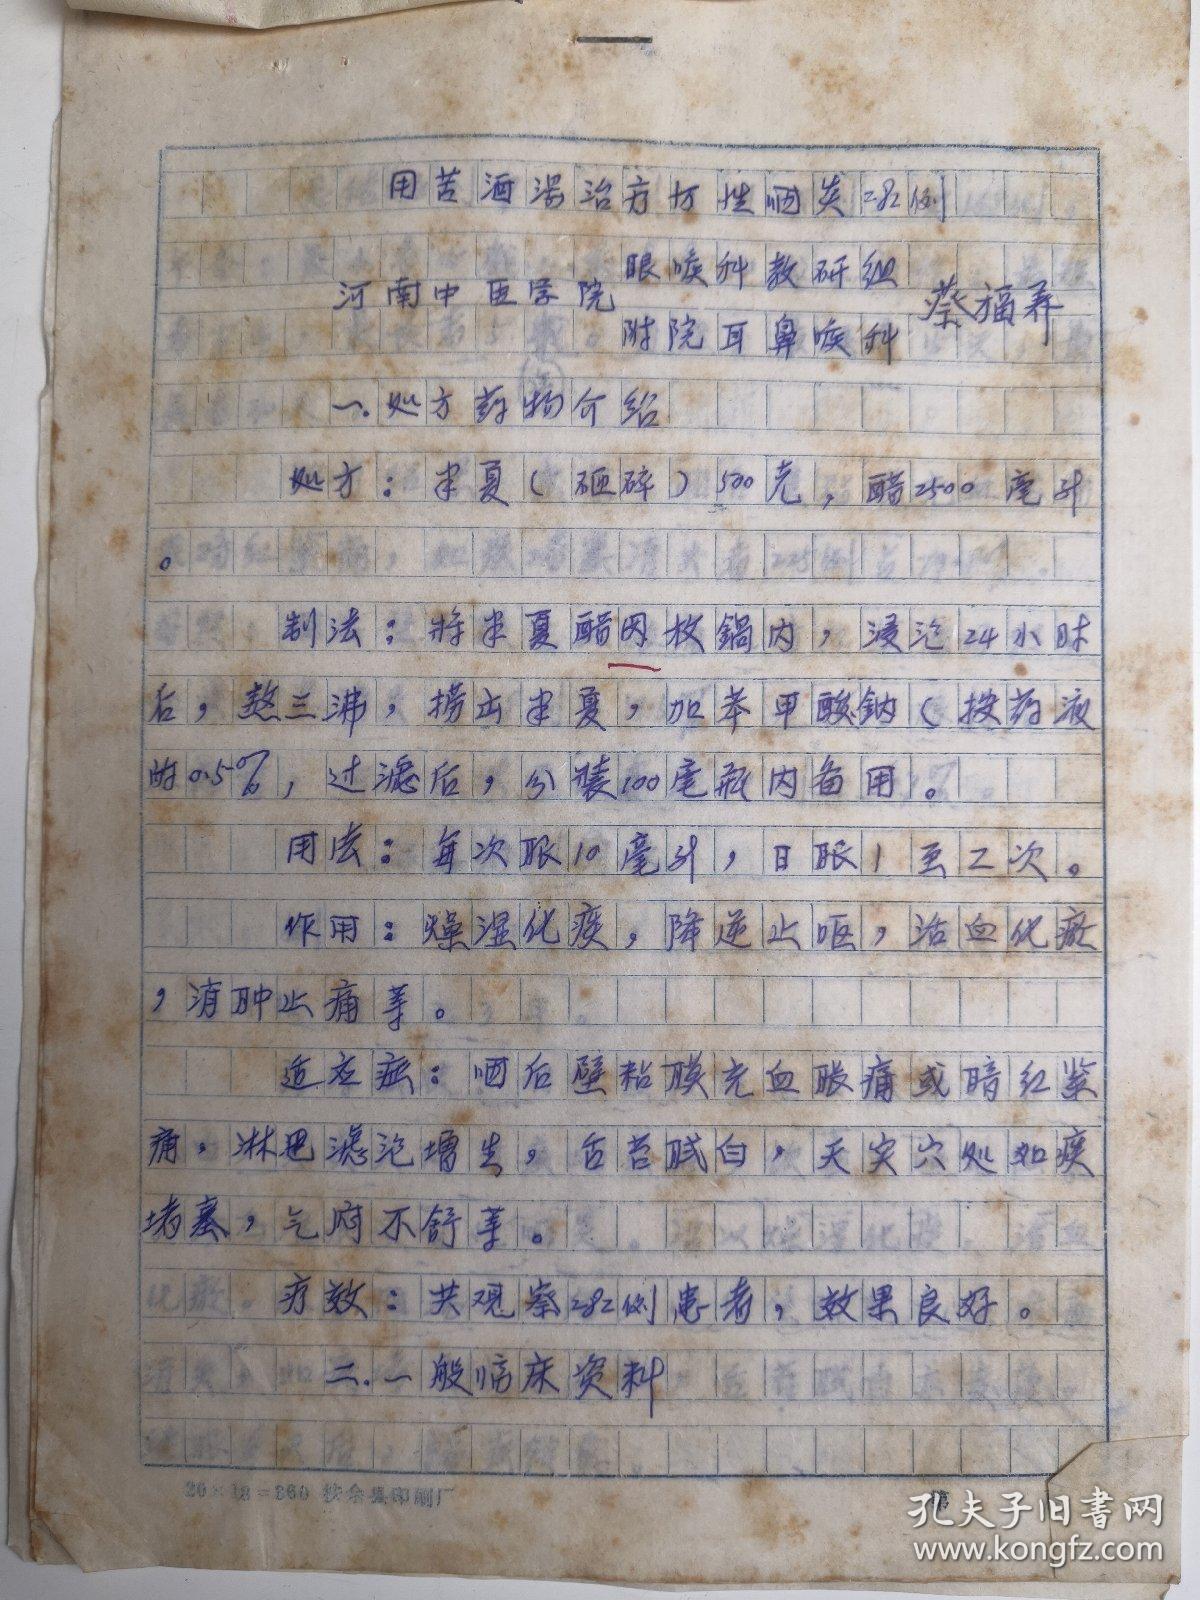 用苦酒汤治疗慢性咽炎282例
眼喉科教研组
河南中医学院 蔡福养
附院耳鼻喉科
一.处方药物介绍
处方：半夏（砸碎）500克，醋2500毫升
。
制法：将半夏醋同放锅内，浸泡24小时
后，熬三沸，捞出半夏，加苯甲酸鈉（按药液
的0.5%，过滤后，分装100毫瓶内备用。
用法：每次服10毫升，日服1至2次。
作用：燥湿化痰，降逆止呕，活血化瘀
，消肿止痛等。
适应症：咽后壁粘膜充血胀痛或暗红紧
痛，淋巴滤泡增生，舌苔腻白，天突穴处如痰
堵塞，气府不舒等。
疗效：共观察282例患者，效果良好。
二.一般临床资料
20×18=360
第
孔夫子旧书网
www.kongfz.com